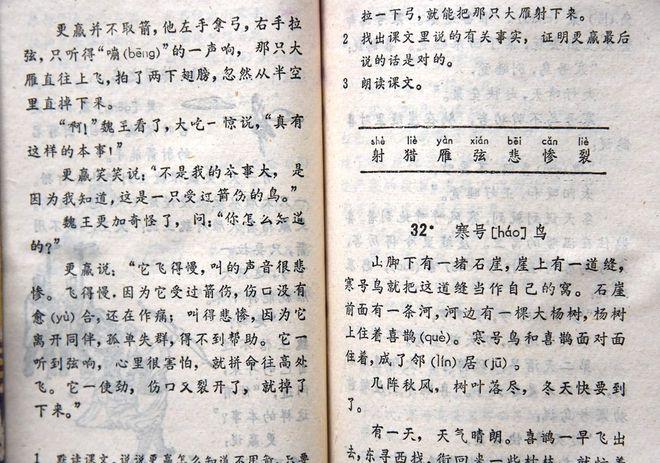 更羸并不取箭，他左手拿弓，右手拉
弦，只听得“嘣(bēng)”的一声响，那只大
雁直往上飞，拍了两下翅膀，忽然从半空
里直掉下来。
“啊！”魏王看了，大吃一惊说，“真有
这样的本事！”
更羸笑笑说：“不是我的本事大，是
因为我知道，这是一只受过箭伤的鸟。”
魏王更加奇怪了，问：“你怎么知道
的？”
更羸说：“它飞得慢，叫的声音很悲
惨。飞得慢，因为它受过箭伤，伤口没有
愈(yù)合，还在作痛；叫得悲惨，因为它
离开同伴，孤单失群，得不到帮助。它一
听到弦响，心里很害怕，就拼命往高处
飞。它一使劲，伤口又裂开了，就掉了
下来。”
1 默读课文。说说更羸怎么知道不用箭，只要
拉一下弓，就能把那只大雁射下来。
2 找出课文里说的有关事实，证明更羸最后
说的话是对的。
3 朗读课文。
shè liè yàn xián bēi cǎn liè
射 猎 雁 弦 悲 惨 裂
32* 寒号[háo]鸟
山脚下有一堵石崖，崖上有一道缝，
寒号鸟就把这道缝当作自己的窝。石崖
前面有一条河，河边有一棵大杨树，杨树
上住着喜鹊(què)。寒号鸟和喜鹊面对面
住着，成了邻(lín)居(jū)。
几阵秋风，树叶落尽，冬天快要到
了。
有一天，天气晴朗。喜鹊一早飞出
去，东寻西找，衔回来一些枯枝，就忙着